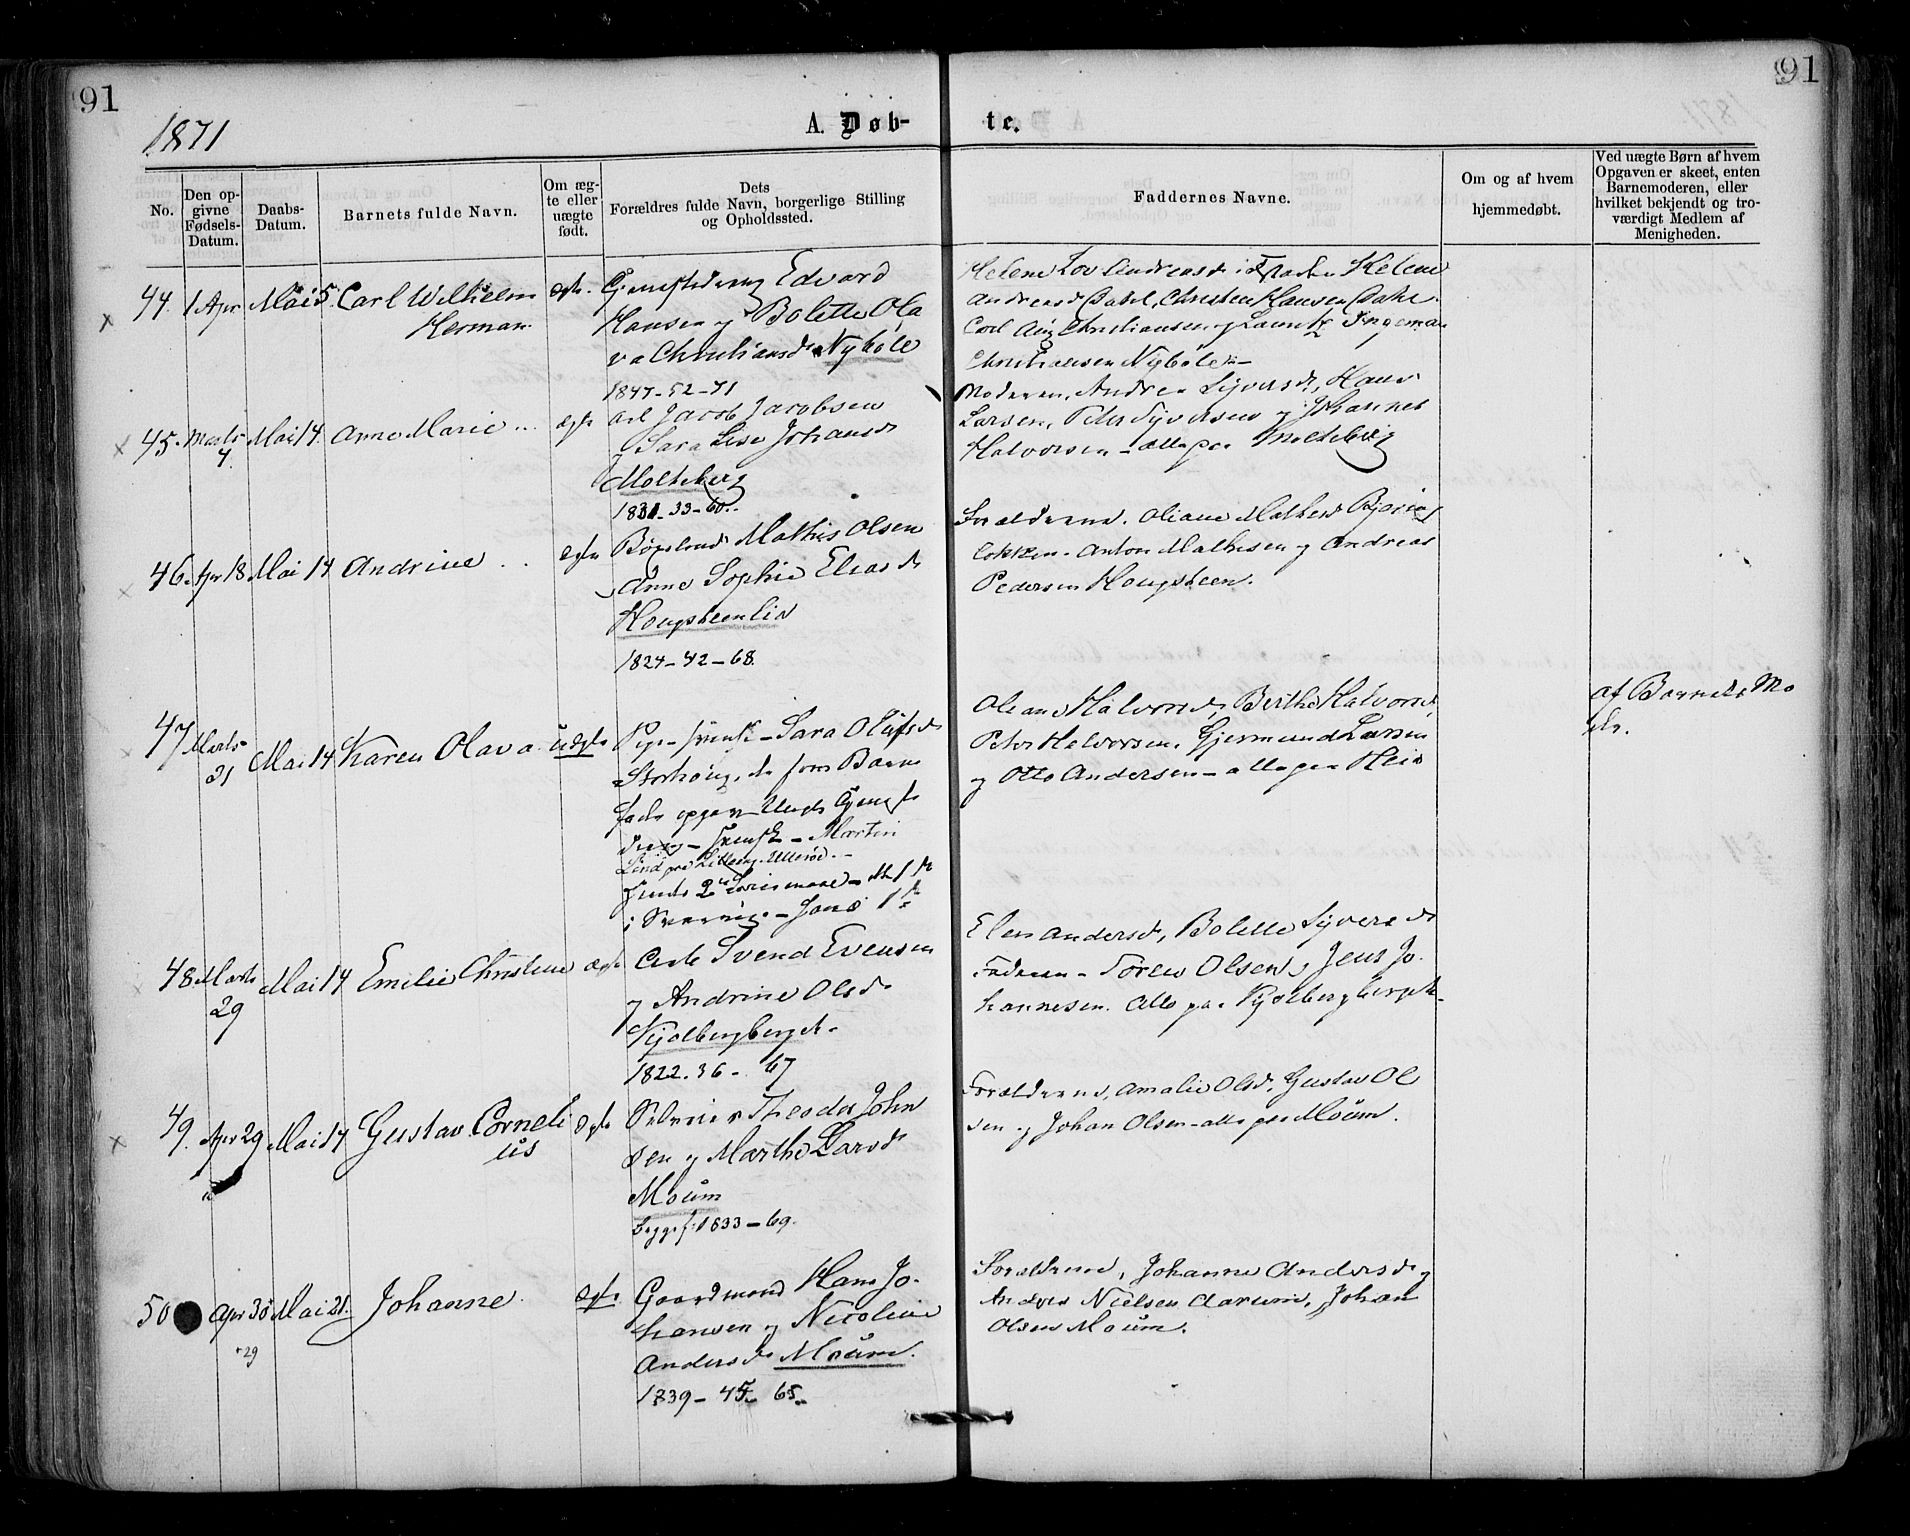 91
91
1871
A. Døb-
te.
No.
Den op-
givne
Fødsels-
Datum.
Daabs-
Datum.
Barnets fulde Navn.
Om æg-
te eller
uægte
født.
Dets
Forældres fulde Navn, borgerlige Stilling
og Opholdssted.
Faddernes Navne.
Om og af hvem
hjemmedøbt.
Ved uægte Børn af hvem
Opgaven er skeet, enten
Barnemoderen, eller
hvilket bekjendt og tro-
værdigt Medlem af
Menigheden.
44. 1 Apr. Mai 5. Carl Wilhelm
Herman
ægte.
Edvard
Hansen og Bolette Ola
va Christiansd. Nyböle
1847-52-71
Helene Andreasd. Helene
Andreasd. Christen Hansen
Carl Aug Christiansen og Ingeman
Christiansen Nyböle
45. Marts
4.
Mai 14. Anne Marie
ægte
Jacob Jacobsen
og Sara Lise Johansd
Molteberg
1831-33-60.
Moderen, Andrea Syversd, Hans
Larsen, Peter Syversen og Johannes
Halvorsen - alle paa Molteberg
46. Apr 18 Mai 14 Andrine
ægte
Mathis Olsen
Anne Sophie Eliasd
Hougsteenlia
1824-42-68.
Forældrene. Oliane Mathisd
Anton Mathisen og Andreas
Pedersen Hougsteen.
47 Marts
21
Mai 14 Karen Olava
uægte
Pige svensk - Sara Olufsd
som Barne
fader opgav
svensk - Martin
Lind paa
2
i Sverrige
Oleane Halvorsd, Berthe Halvorsd,
Peter Halvorsen, Gjermund Larsen
og Otto Andersen - alle paa Heie
af Barnets Mo
der.
48 Marts
29
Mai 14 Emilie Christine
ægte
Svend Evensen
og Andrine Olsd
Kjølbergberget.
1822.36-67
Elen Andersd, Bolette Syversd
Faderen - Søren Olsen, Jens Jo
hannesen. Alle paa Kjølbergberget.
49. Apr 29 Mai 14 Gustav Corneli
us
ægte
Theodor John
sen og Marthe Larsd
Moum
begge f: 1833-69.
Forældrene, Amalie Olsd, Gustav Ol
sen og Johan Olsen - alle paa Moum.
50 Apr 30 Mai 21. Johanne.
29
ægte
Gaardmand Hans Jo-
hansen og Nicoline
Andersd. Moum.
1839-45-65.
Forældrene, Johanne Andersd og
Anders Nielsen Aarum, Johan
Olsen Moum.